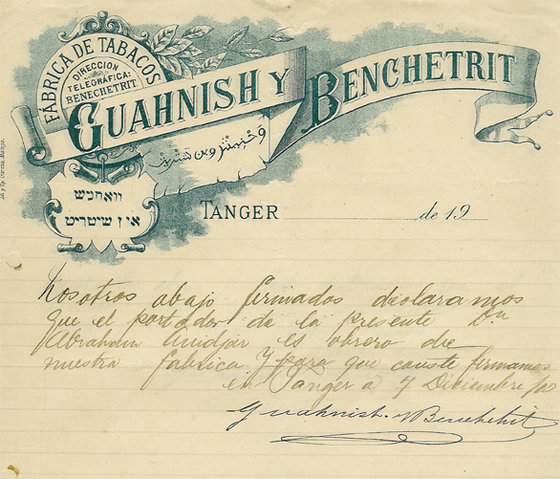 FÁBRICA DE TABACOS
DIRECCION
TELEGRÁFICA:
BENECHETRIT
GUAHNISH Y BENCHETRIT
וואחניש
אין שיטרית
TANGER de 19
Nosotros abajo firmados declaramos
que el portador de la presente Dn
Abraham es obrero de
nuestra fabrica. Y para que conste firmamos
en Tanger a 7 Diciembre
Guahnish y Benchetrit